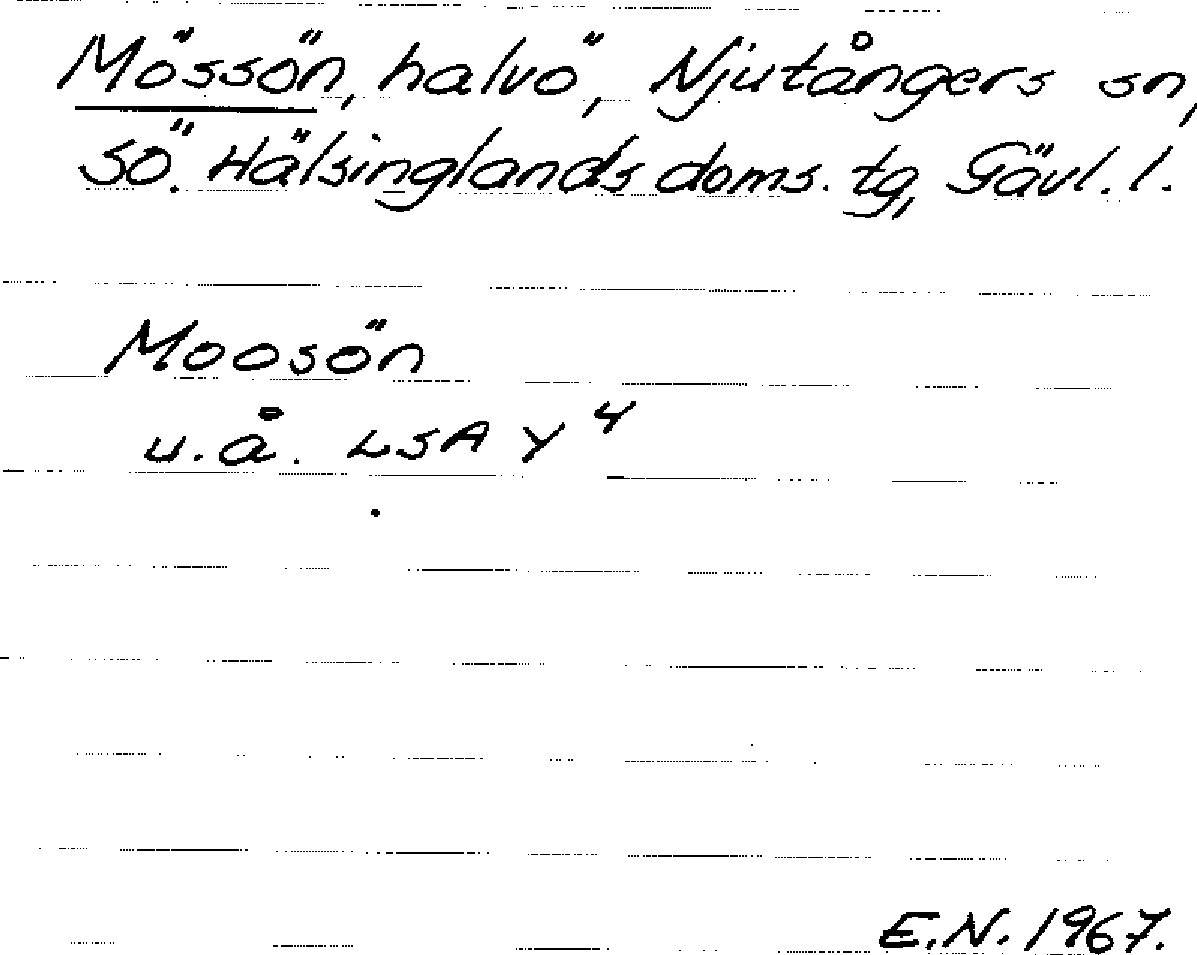 Mössön, halvö, Njutångers sn,
Sö. Hälsinglands doms. tg, Gävl. l.
Moosön
u.å. LSA Y 4
E.N. 1967.